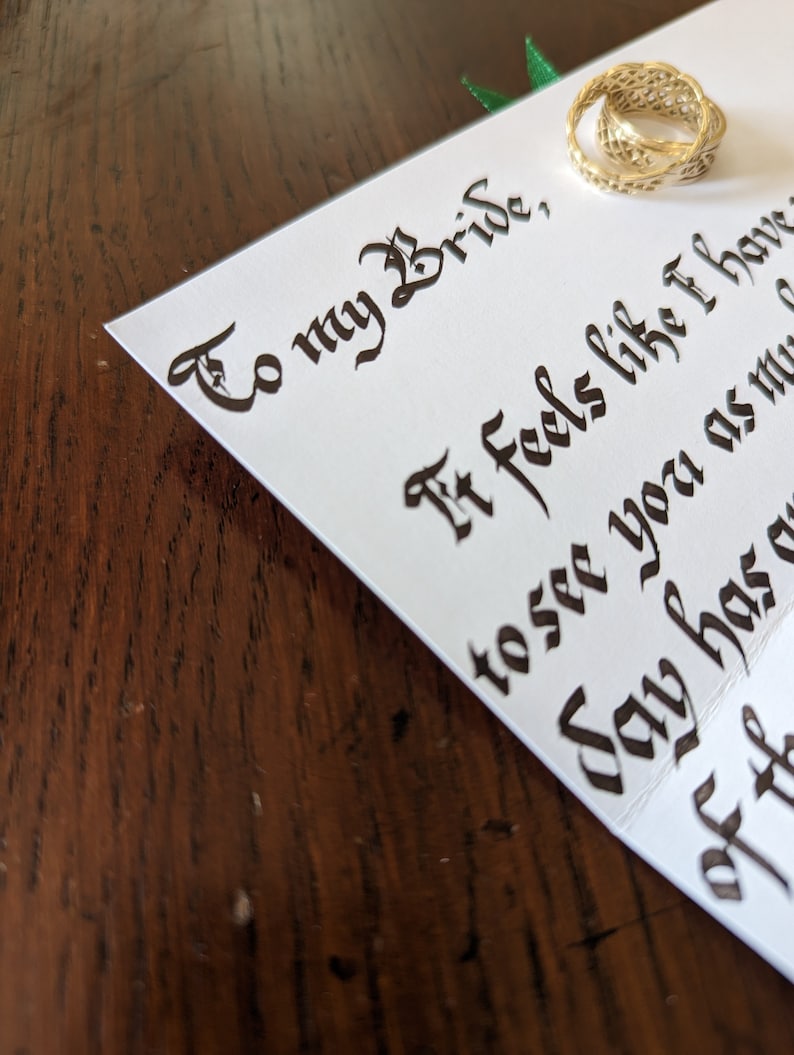 To my Bride,
It feels like I have
to see you as my
day has
of